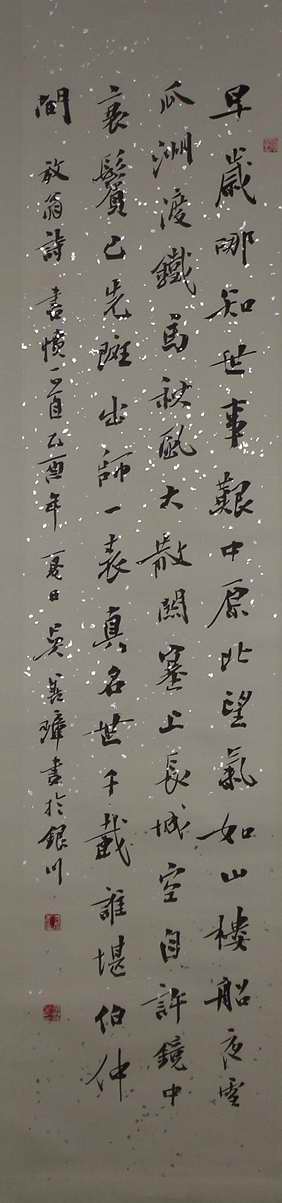 早歲哪知世事艱中原北望氣如山樓船夜雪
瓜洲渡鐵馬秋風大散關塞上長城空自許鏡中
衰鬢已先斑出師一表真名世千載誰堪伯仲
間 放翁詩書憤一首乙酉年夏日吳善璋書於銀川